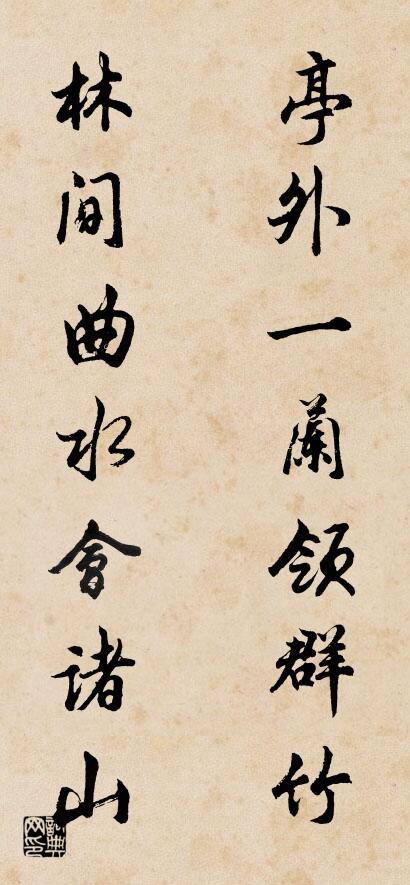 亭外一蘭領群竹
林間曲水會諸山